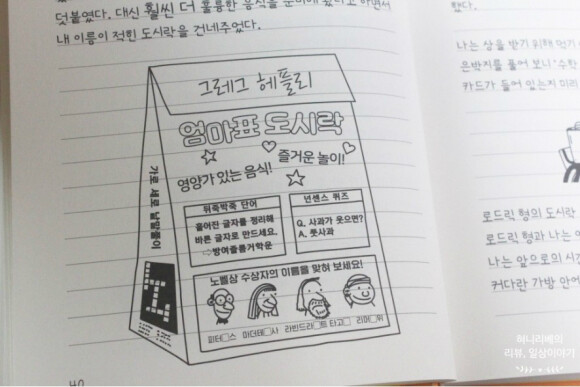 덧붙였다. 대신 훨씬 더 훌륭한 음식을 준비해 놨다고 하면서
내 이름이 적힌 도시락을 건네주었다.
그레그 헤플리
엄마표 도시락
영양가 있는 음식!
즐거운 놀이!
가로 세로 낱말풀이
뒤죽박죽 단어
흩어진 글자를 정리해
바른 글자로 만드세요.
⇨방여줄름거학운
넌센스 퀴즈
Q. 사과가 웃으면?
A. 풋사과
노벨상 수상자의 이름을 맞혀 보세요!
피터□스 마더테□사 라빈드라□트 타고□ 리머□위
40
했다.
나는 상을 받기 위해 먼저
은박지를 풀어 보니 '수학
카드가 들어 있는지 미리
로드릭 형의 도시락
로드릭 형과 나는 예
나는 앞으로의 시간
커다란 가방 안에
허니리배의
리뷰, 일상이야기